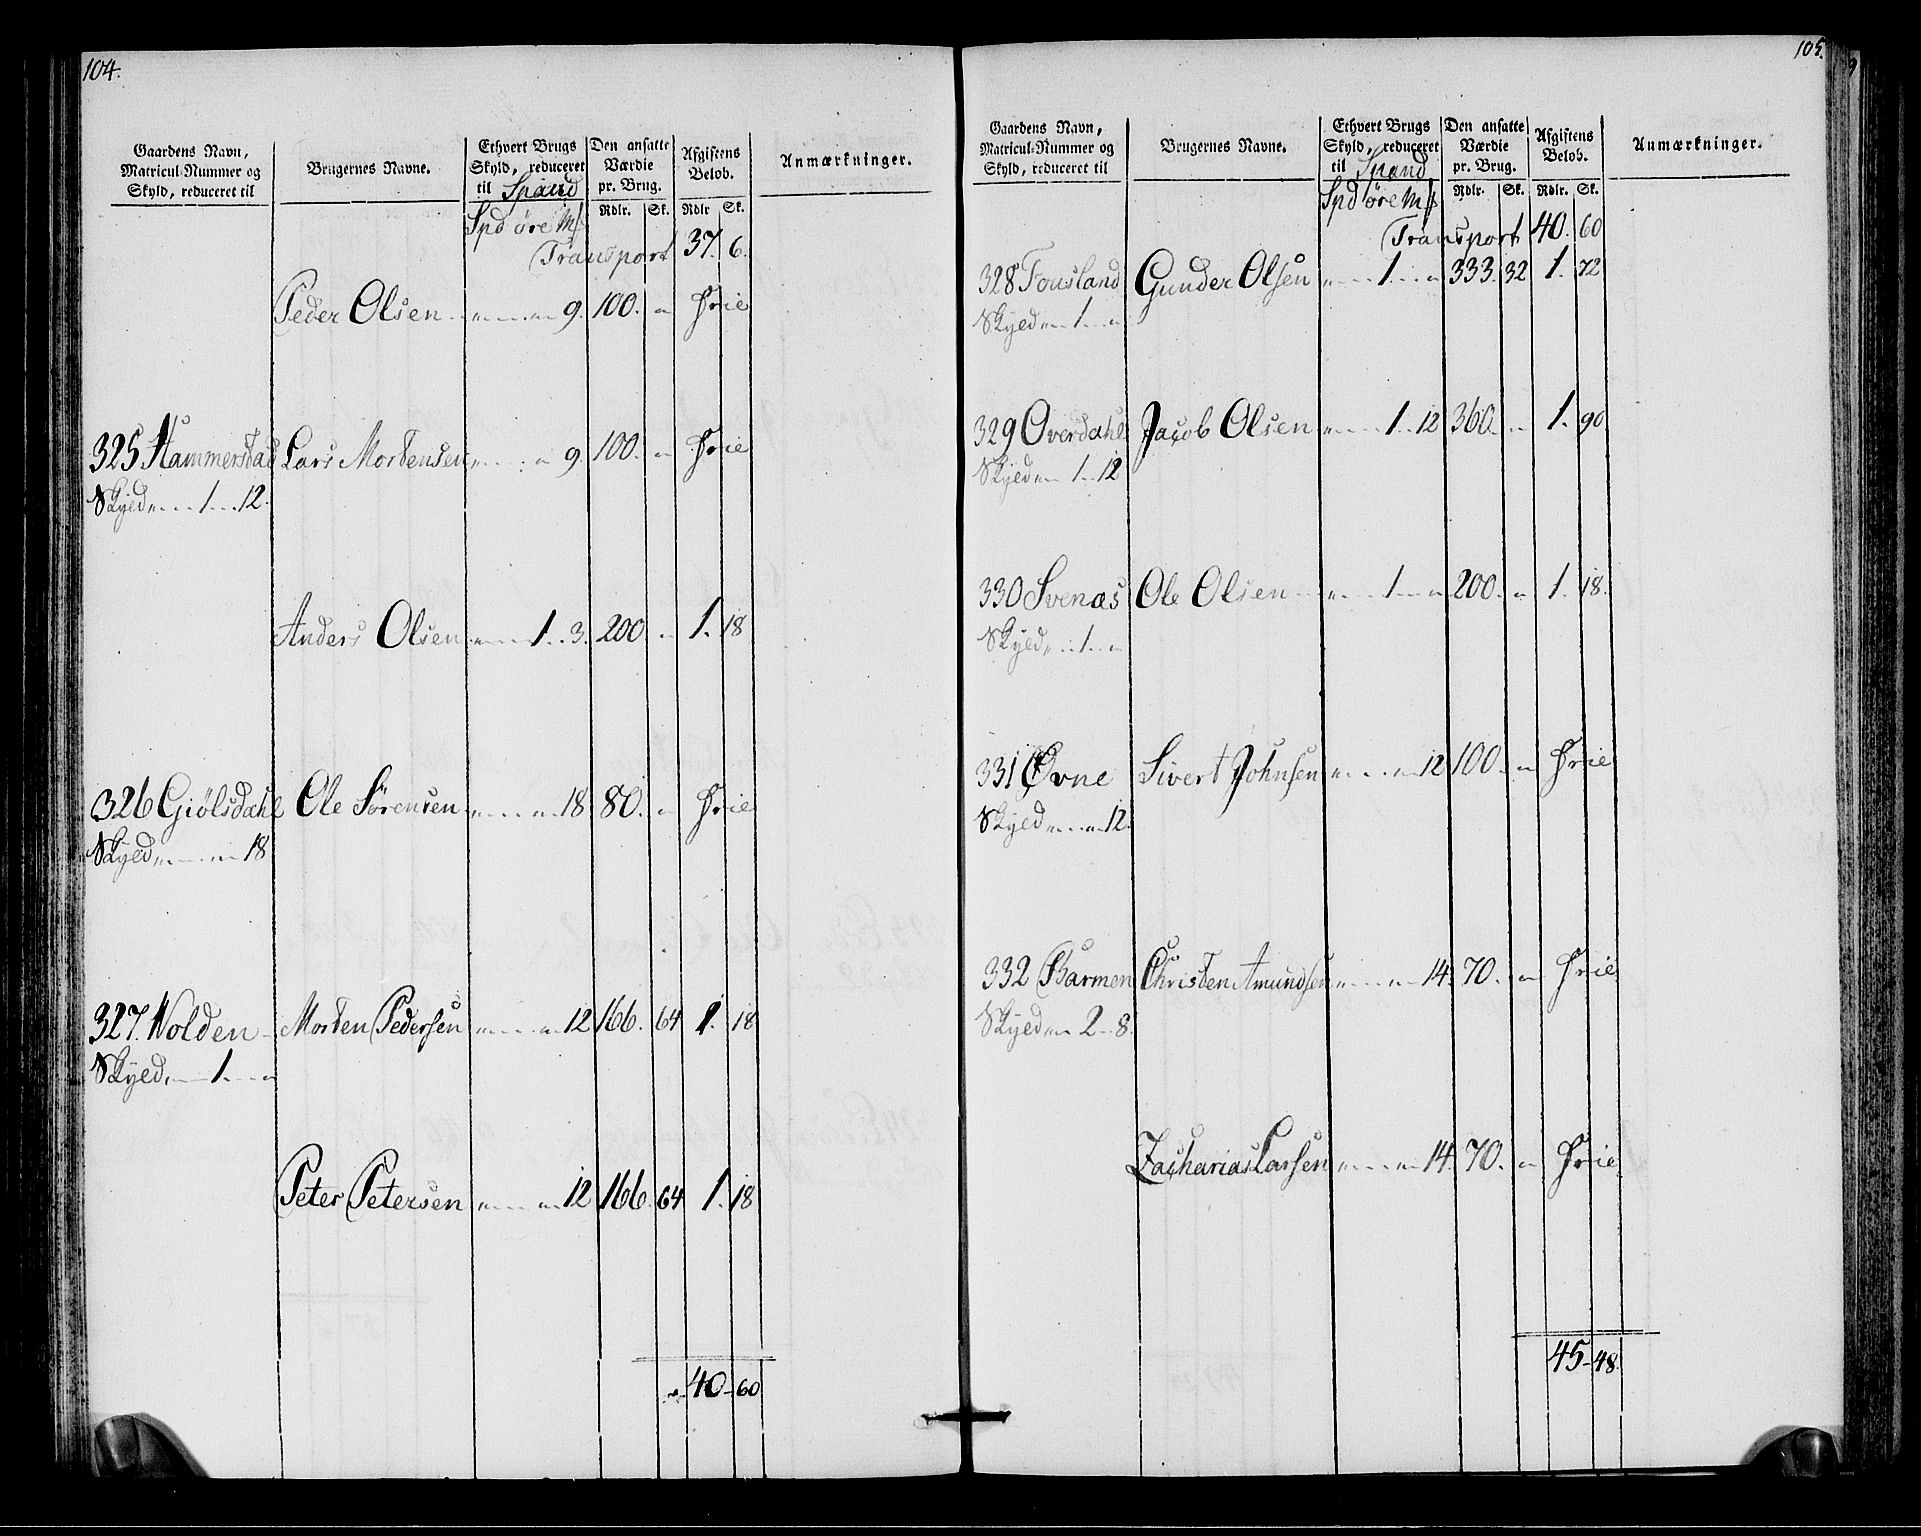 104.
Gaardens Navn, Matricul-Nummer og Skyld, reduceret til
Brugernes Navne.
Ethvert Brugs Skyld, reduceret til Spand
Den ansatte Værdie pr. Brug.
Afgiftens Beløb.
Anmærkninger.
Spd øre M
Rdlr. Sk. Rdlr Sk.
Transport 37. 6.
Peder Olsen 9. 100. " Frie
325 Hammerstad Lars Mortensen 9. 100. " Frie
Skyld 1 12.
Anders Olsen 1. 3. 200. " 1. 18
326 Giölsdahl Ole Sørensen 18 80. " Frie
Skyld 18
327. Wolden Morten Pedersen 12 166. 64 1. 18
Skyld 1. "
Peter Petersen 12 166. 64 1. 18
40 - 60
105.
Gaardens Navn, Matricul-Nummer og Skyld, reduceret til
Brugernes Navne.
Ethvert Brugs Skyld, reduceret til Spand
Den ansatte Værdie pr. Brug.
Afgiftens Beløb.
Anmærkninger.
Spd øre M
Rdlr. Sk. Rdlr. Sk.
Transport 40. 60
328 Fousland Gunder Olsen 1. " 333. 32 1. 72
Skyld 1. "
329 Overdahl Jacob Olsen 1. 12 360. " 1. 90
Skyld 1 12
330 Svenæs Ole Olsen 1. " 200. " 1. 18.
Skyld 1. "
331 Øvne Sivert Johnsen 12 100. " Frie
Skyld 12.
332 Barmen Christen Amundsen 14. 70. " Frie
Skyld 2 - 8.
Zacharias Larsen 14. 70. " Frie
45 - 48.